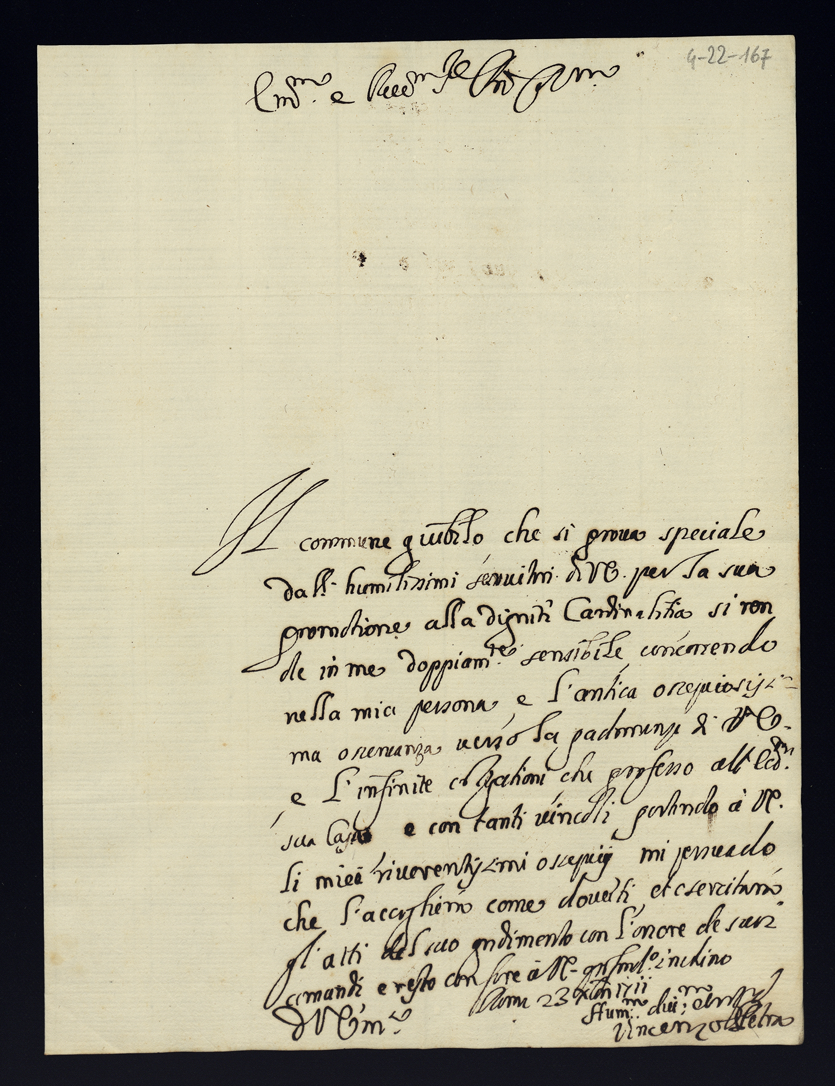 4-22-167
Em.mo e Reu.mo Sig.
Il commune giubilo che si proua speciale
dall' humilissimi seruitori di VE. per la sua
promotione alla dignità Cardinalitia si ren
de in me doppiam.te sensibile concorrendo
nella mia persona e l'antica ossequiosissi
ma osseruanza uerso la di VE.
e l'infinite obligationi che professo all'
sua Casa e con tanti uincoli portando à VE.
li miei riuerentissimi ossequij mi persuado
che l'accoglierà come douuti et esercitarà
gl'atti del suo gradimento con l'onore de suoi
comandi e resto con fare à VE. profond.o inchino
Roma 23 1711
D VE
Hum.mo diu.mo
Vincenzo Petra